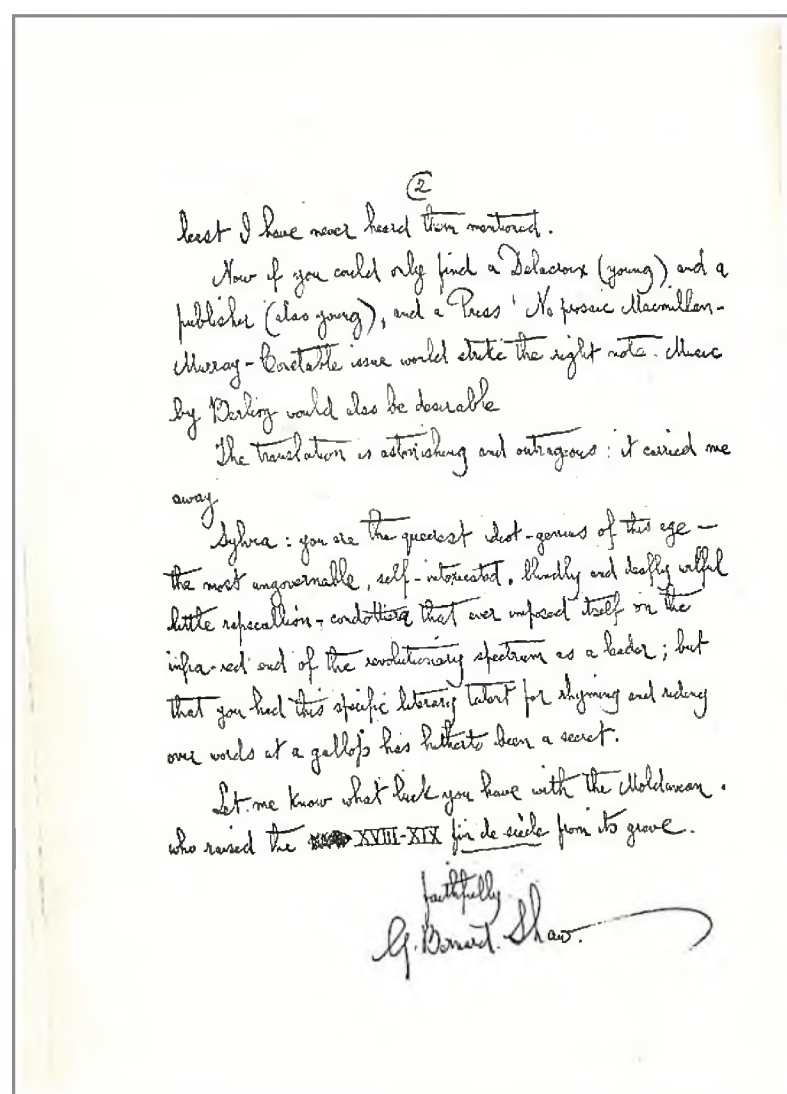 (2
least I have never heard them mentioned.
Now if you could only find a Delacroix (young) and a
publisher (also young), and a Press! No prosaic Macmillan-
Murray-Constable issue would strike the right note. Music
by Berlioz would also be desirable
The translation is astonishing and outrageous: it carried me
away
Sylvia: you are the queerest idiot-genius of this age —
the most ungovernable, self-intoxicated, blindly and deafly wilful
little rapscallion-condottiera that ever imposed itself on the
infra-red end of the revolutionary spectrum as a leader; but
that you had this specific literary talent for rhyming and riding
over words at a gallop has hitherto been a secret.
Let me know what luck you have with the Moldavian.
who raised the XVIII-XIX fin de siècle from its grave.
faithfully
G. Bernard Shaw.